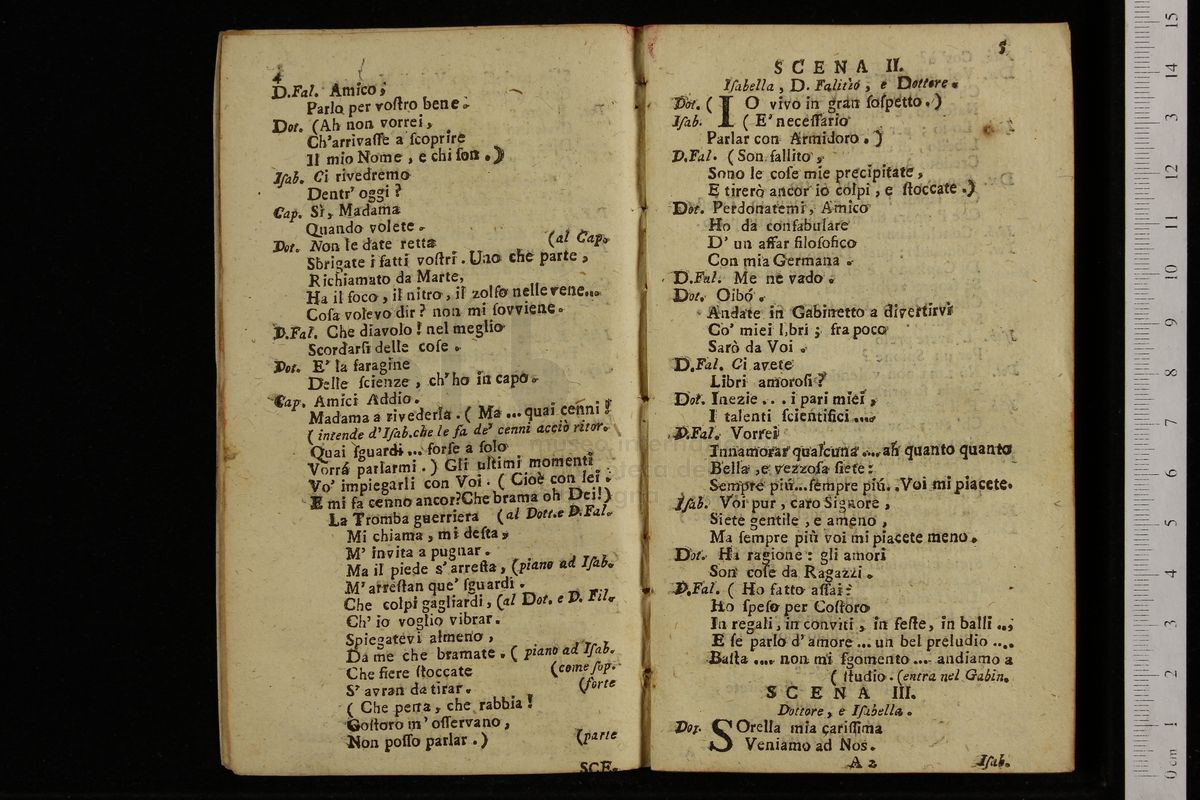 4
D.Fal. Amico;
Parlo per voſtro bene.
Dot. (Ah non vorrei,
Ch'arrivaſſe a ſcoprire
Il mio Nome, e chi ſon.)
Iſab. Ci rivedremo
Dentr' oggi?
Cap. Sì, Madama
Quando volete.
Dot. Non le date retta (al Cap.
Sbrigate i fatti voſtri. Uno che parte,
Richiamato da Marte,
Ha il foco, il nitro, il zolfo nelle vene...
Coſa volevo dir? non mi ſovviene.
D.Fal. Che diavolo! nel meglio
Scordarſi delle coſe.
Dot. E' la faragine
Delle ſcienze, ch'ho in capo.
Cap. Amici Addio.
Madama a rivederla. (Ma... quai cenni!
(intende d'Iſab. che le fa de' cenni acciò ritor.
Quai ſguardi... forſe a ſolo
Vorrá parlarmi.) Gli ultimi momenti
Vo' impiegarli con Voi. (Cioè con lei.
E mi fa cenno ancor? Che brama oh Dei!)
La Tromba guerriera (al Dott. e D.Fal.
Mi chiama, mi deſta,
M' invita a pugnar.
Ma il piede s' arreſta, (piano ad Iſab.
M' arreſtan que' ſguardi.
Che colpi gagliardi, (al Dot. e D. Fil.
Ch' io voglio vibrar.
Spiegatevi almeno,
Da me che bramate. (piano ad Iſab.
Che fiere ſtoccate (come ſop.
S' avran da tirar. (forte
(Che pena, che rabbia!
Coſtoro m' oſſervano,
Non poſſo parlar.) (parte
SCE-
5
SCENA II.
Iſabella, D. Falitto, e Dottore.
Dot. (IO vivo in gran ſoſpetto.)
Iſab. (E' neceſſario
Parlar con Armidoro.)
D.Fal. (Son fallito,
Sono le coſe mie precipitate,
E tirerò ancor io colpi, e ſtoccate.)
Dot. Perdonatemi, Amico
Ho da confabulare
D' un affar filoſofico
Con mia Germana.
D.Fal. Me ne vado.
Dot. Oibó.
Andate in Gabinetto a divertirvi
Co' miei libri; fra poco
Sarò da Voi.
D.Fal. Ci avete
Libri amoroſi?
Dot. Inezie... i pari miei,
I talenti ſcientifici....
D.Fal. Vorrei
Innamorar qualcuna.... ah quanto quanto
Bella, e vezzoſa ſiete:
Sempre piú... ſempre piú.. Voi mi piacete.
Iſab. Voi pur, caro Signore,
Siete gentile, e ameno,
Ma ſempre più voi mi piacete meno.
Dot. Ha ragione: gli amori
Son coſe da Ragazzi.
D.Fal. (Ho fatto aſſai:
Ho ſpeſo per Coſtoro
In regali, in conviti, in feſte, in balli..,
E ſe parlo d' amore... un bel preludio....
Baſta.... non mi ſgomento.... andiamo a
(ſtudio. (entra nel Gabin.
SCENA III.
Dottore, e Iſabella.
Dot. SOrella mia cariſſima
Veniamo ad Nos.
A 2 Iſab.
0 cm 1 2 3 4 5 6 7 8 9 10 11 12 3 14 15